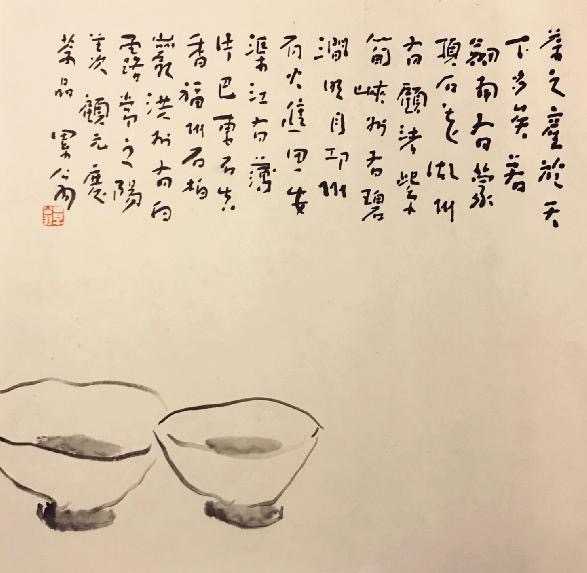 茶之產於天
下多矣若
劍南有蒙
頂石花湖州
有顧渚紫
筍峽州有碧
澗明月邛州
有火井思安
渠江有薄
片巴東有真
香福州有柏
巖洪州有白
露常之陽
羨次 顧元慶
茶品